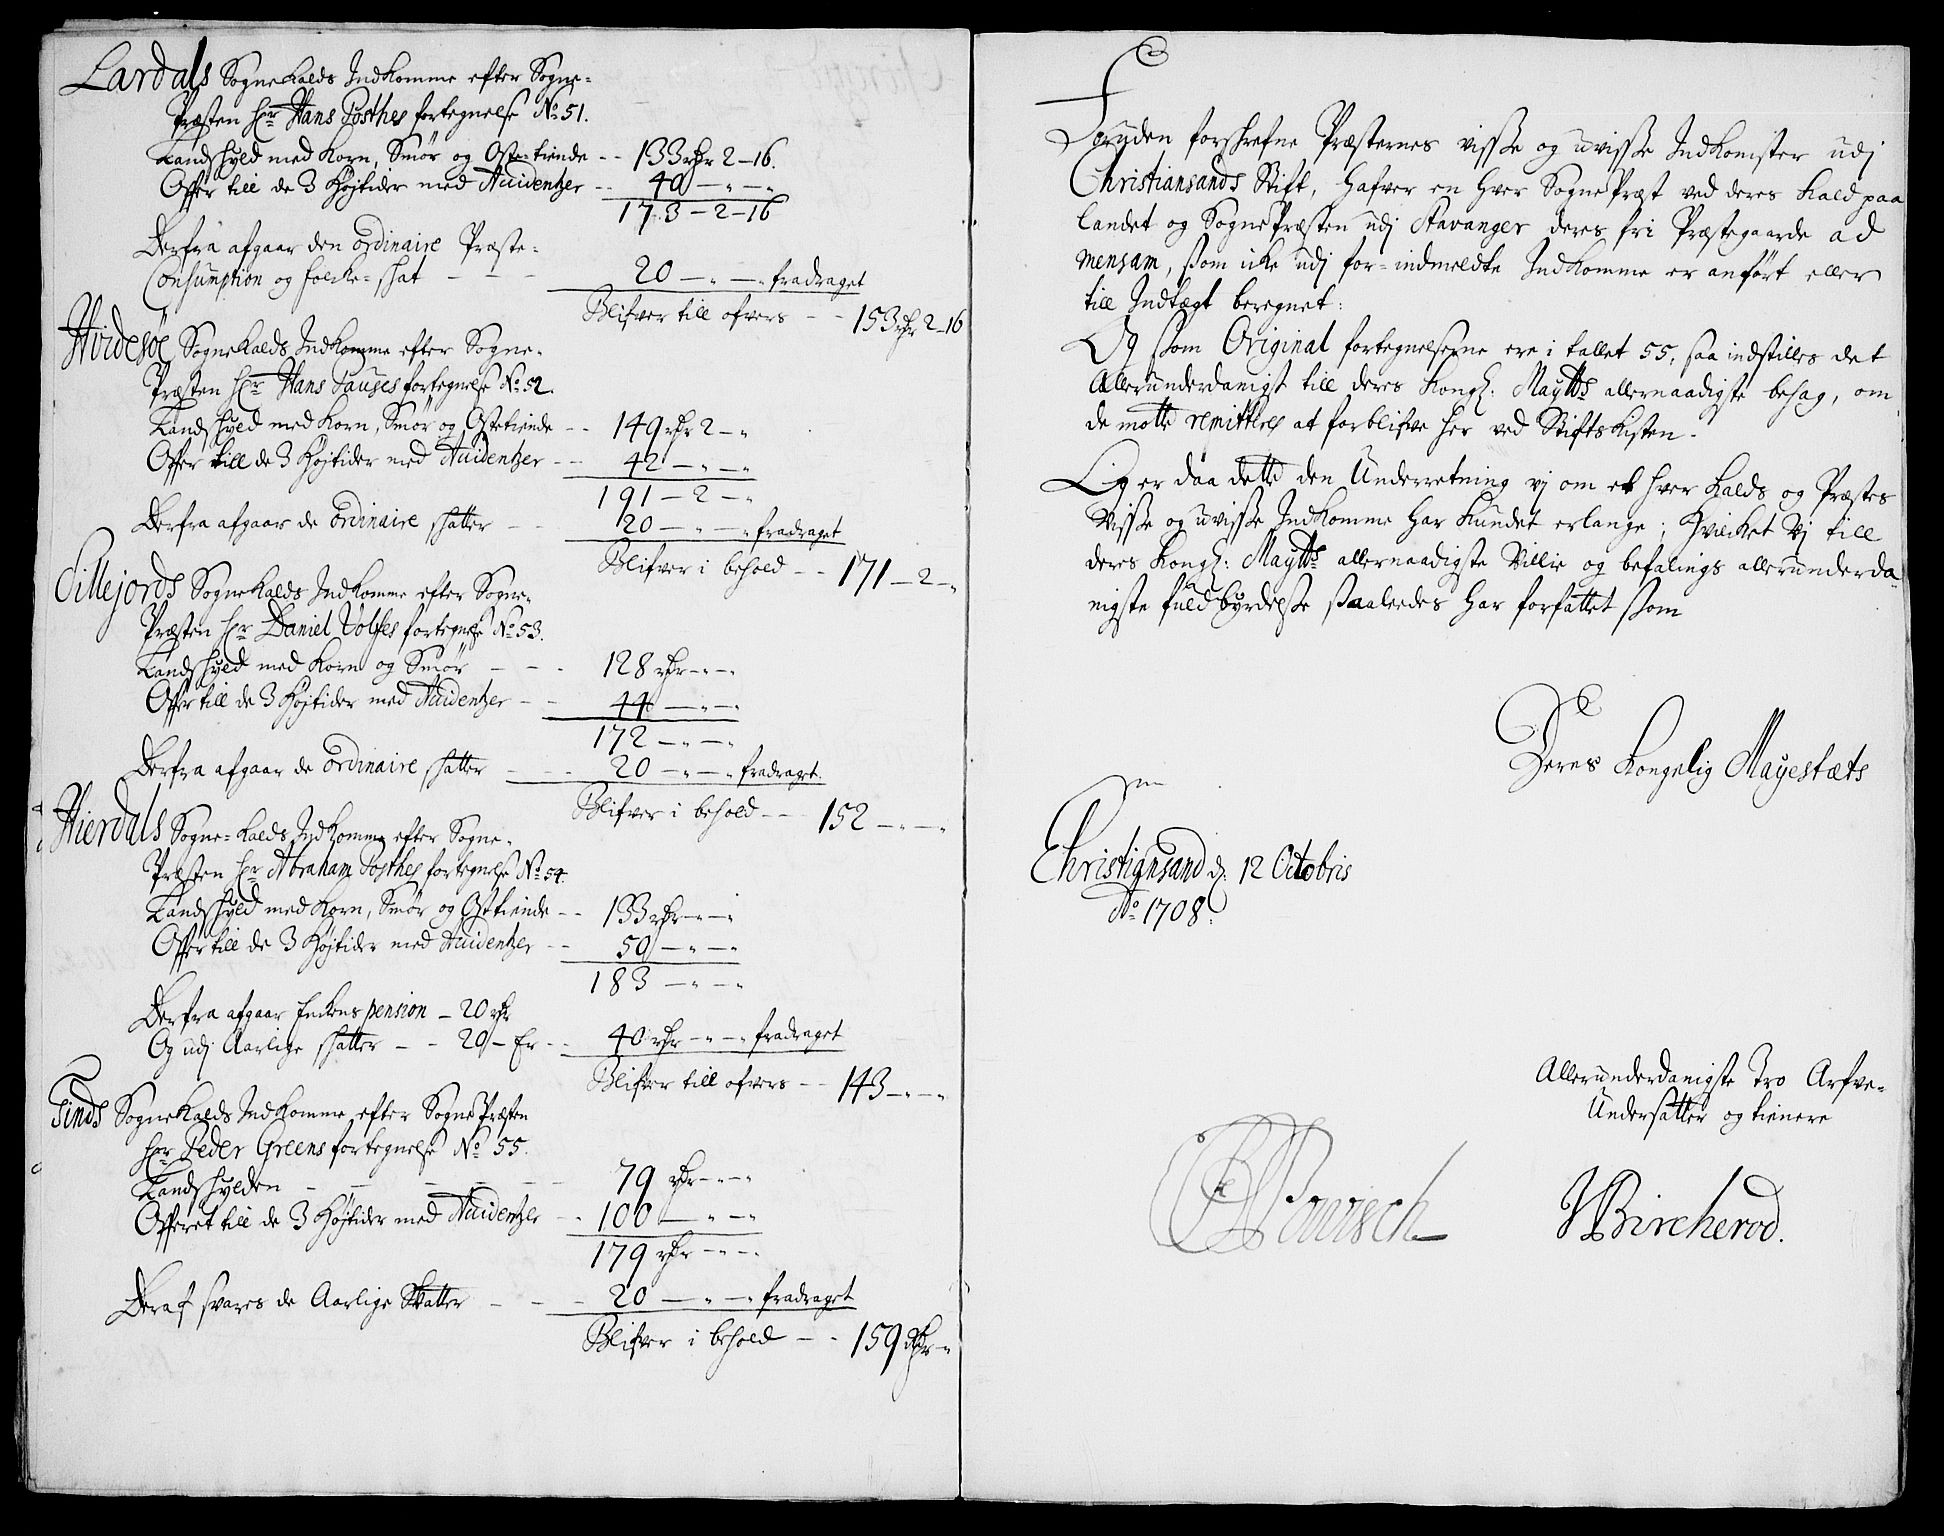 Lardals Sognekalds Indkomme efter Sogne-
Præsten Hr Hans Posthes fortegnelse No 51.
Landskyld med Korn, Smør og Oste-tiende -- 133 rdr 2-16.
Offer till de 3 Højtider med Accidentzer -- 40 - " - "
173 - 2 - 16
Derfra afgaar den ordinaire Præste-
Consumption og folke-skat - - - 20 - " - " fradraget
Blifver till ofvers - - 153 rdr 2-16
Hvidesøe Sognekalds Indkomme efter Sogne-
Præsten Hr Hans Pauses fortegnelse No 52.
Landskyld med Korn, Smør og Ostetiende - - 149 rdr 2 - "
Offer till de 3 Højtider med Accidentzer - - 42 - " - "
191 - 2 - "
Derfra afgaar de ordinaire skatter - - 20 - " - " fradraget
Blifver i behold - - 171 - 2 - "
Sillejords Sognekalds Indkomme efter Sogne-
Præsten Hr Daniel Volfes fortegnelse No 53.
Landskyld med Korn og Smør - - - 128 rdr - " - "
Offer till de 3 Højtider med Accidentzer - - 44 - " - "
172 - " - "
Derfra afgaar de ordinaire skatter - - 20 - " - " fradraget.
Blifver i behold - - 152 - " - "
Hierdals Sogne-Kalds Indkomme efter Sogne-
Præsten Hr Abraham Posthes fortegnelse No 54.
Landskyld med Korn, Smør og Ostetiende - - 133 rdr - " - "
Offer till de 3 Højtider med Accidentzer - - 50 - " - "
183 - " - "
Derfra afgaar Enkens pension - 20 rdr
Og udj Aarlige skatter - - 20 - Er - - 40 rdr - " - " fradraget
Blifver till ofvers - - 143 - " - "
Tinds Sognekalds Indkomme efter SognePræsten
Hr Peder Greens fortegnelse No 55.
Landskylden - - - - - 79 rdr - " - "
Offeret till de 3 Højtider med Accidentzer - - 100 - " - "
179 rdr - " - "
Deraf svares de Aarlige Skatter - - - 20 - " - " fradraget
Blifver i behold - - 159 rdr - "
Foruden forskrefne Præsternes visse og uvisse Indkomster udj
Christiansands Stift, hafver en hver SognePræst ved deres Kald paa
landet og SognePræsten udj Stavanger deres fri Præstegaarde ad
mensam, som icke udj for-indmeldte Indkomme er anført eller
till Indtægt beregnet:
Og som Original fortegnelserne ere i tallet 55, saa indstilles det
Allerunderdanigst till deres Kongl: Maÿtts allernaadigste behag, om
de motte remitteres at forblifve her ved Stiftskisten.
Og er daa dette den Underretning vj om et hver Kalds og Præstes
Visse og uvisse Indkomme har kundet erlange; hvilket Vj till
deres Kongl: Maÿtts allernaadigste Villie og befalings allerunderda-
nigste fuldbyrdelse saaledes har forfattet som
Deres Kongelig Mayestæts
Christiansand d: 12 Octobris
Ao 1708.
Allerunderdanigste Tro Arfve-
Undersatter og tienere
Powisch
JBircherod.